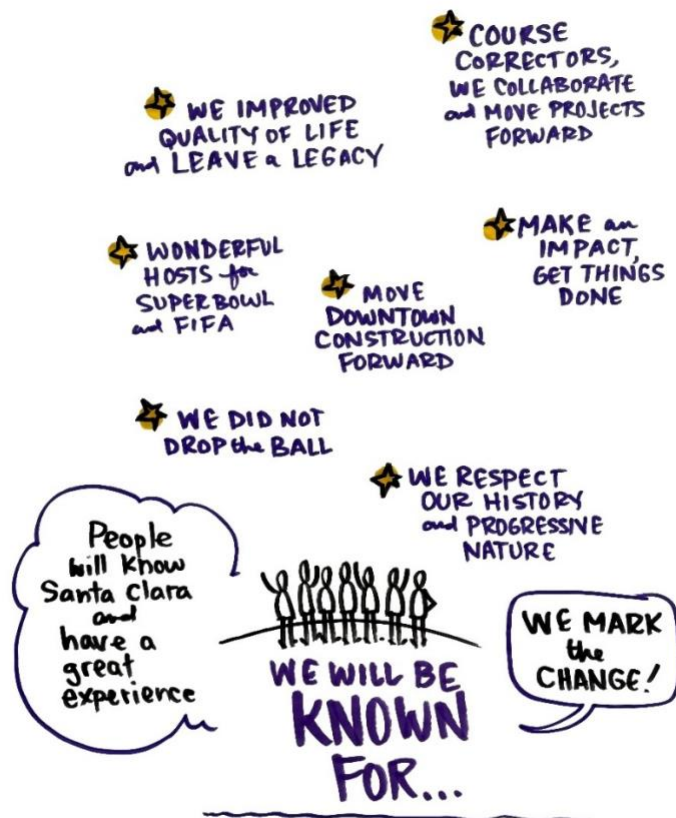 COURSE
CORRECTORS,
WE COLLABORATE
and MOVE PROJECTS
FORWARD
WE IMPROVED
QUALITY OF LIFE
and LEAVE a LEGACY
MAKE an
IMPACT,
GET THINGS
DONE
WONDERFUL
HOSTS for
SUPERBOWL
and FIFA
MOVE
DOWNTOWN
CONSTRUCTION
FORWARD
WE DID NOT
DROP the BALL
WE RESPECT
OUR HISTORY
and PROGRESSIVE
NATURE
People
will know
Santa Clara
and
have a
great
experience
WE MARK
the
CHANGE!
WE WILL BE
KNOWN
FOR...